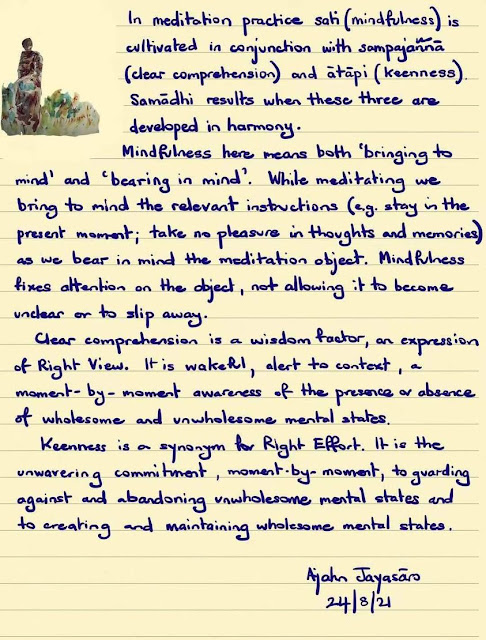 In meditation practice sati (mindfulness) is
cultivated in conjunction with sampajaññā
(clear comprehension) and ātāpi (keenness).
Samādhi results when these three are
developed in harmony.
Mindfulness here means both 'bringing to
mind' and 'bearing in mind'. While meditating we
bring to mind the relevant instructions (e.g. stay in the
present moment; take no pleasure in thoughts and memories)
as we bear in mind the meditation object. Mindfulness
fixes attention on the object, not allowing it to become
unclear or to slip away.
Clear comprehension is a wisdom factor, an expression
of Right View. It is wakeful, alert to context, a
moment-by-moment awareness of the presence or absence
of wholesome and unwholesome mental states.
Keenness is a synonym for Right Effort. It is the
unwavering commitment, moment-by-moment, to guarding
against and abandoning unwholesome mental states and
to creating and maintaining wholesome mental states.
Ajahn Jayasāro
24/8/21